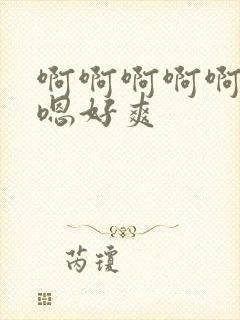 啊啊啊啊啊
嗯好爽
芮瓊